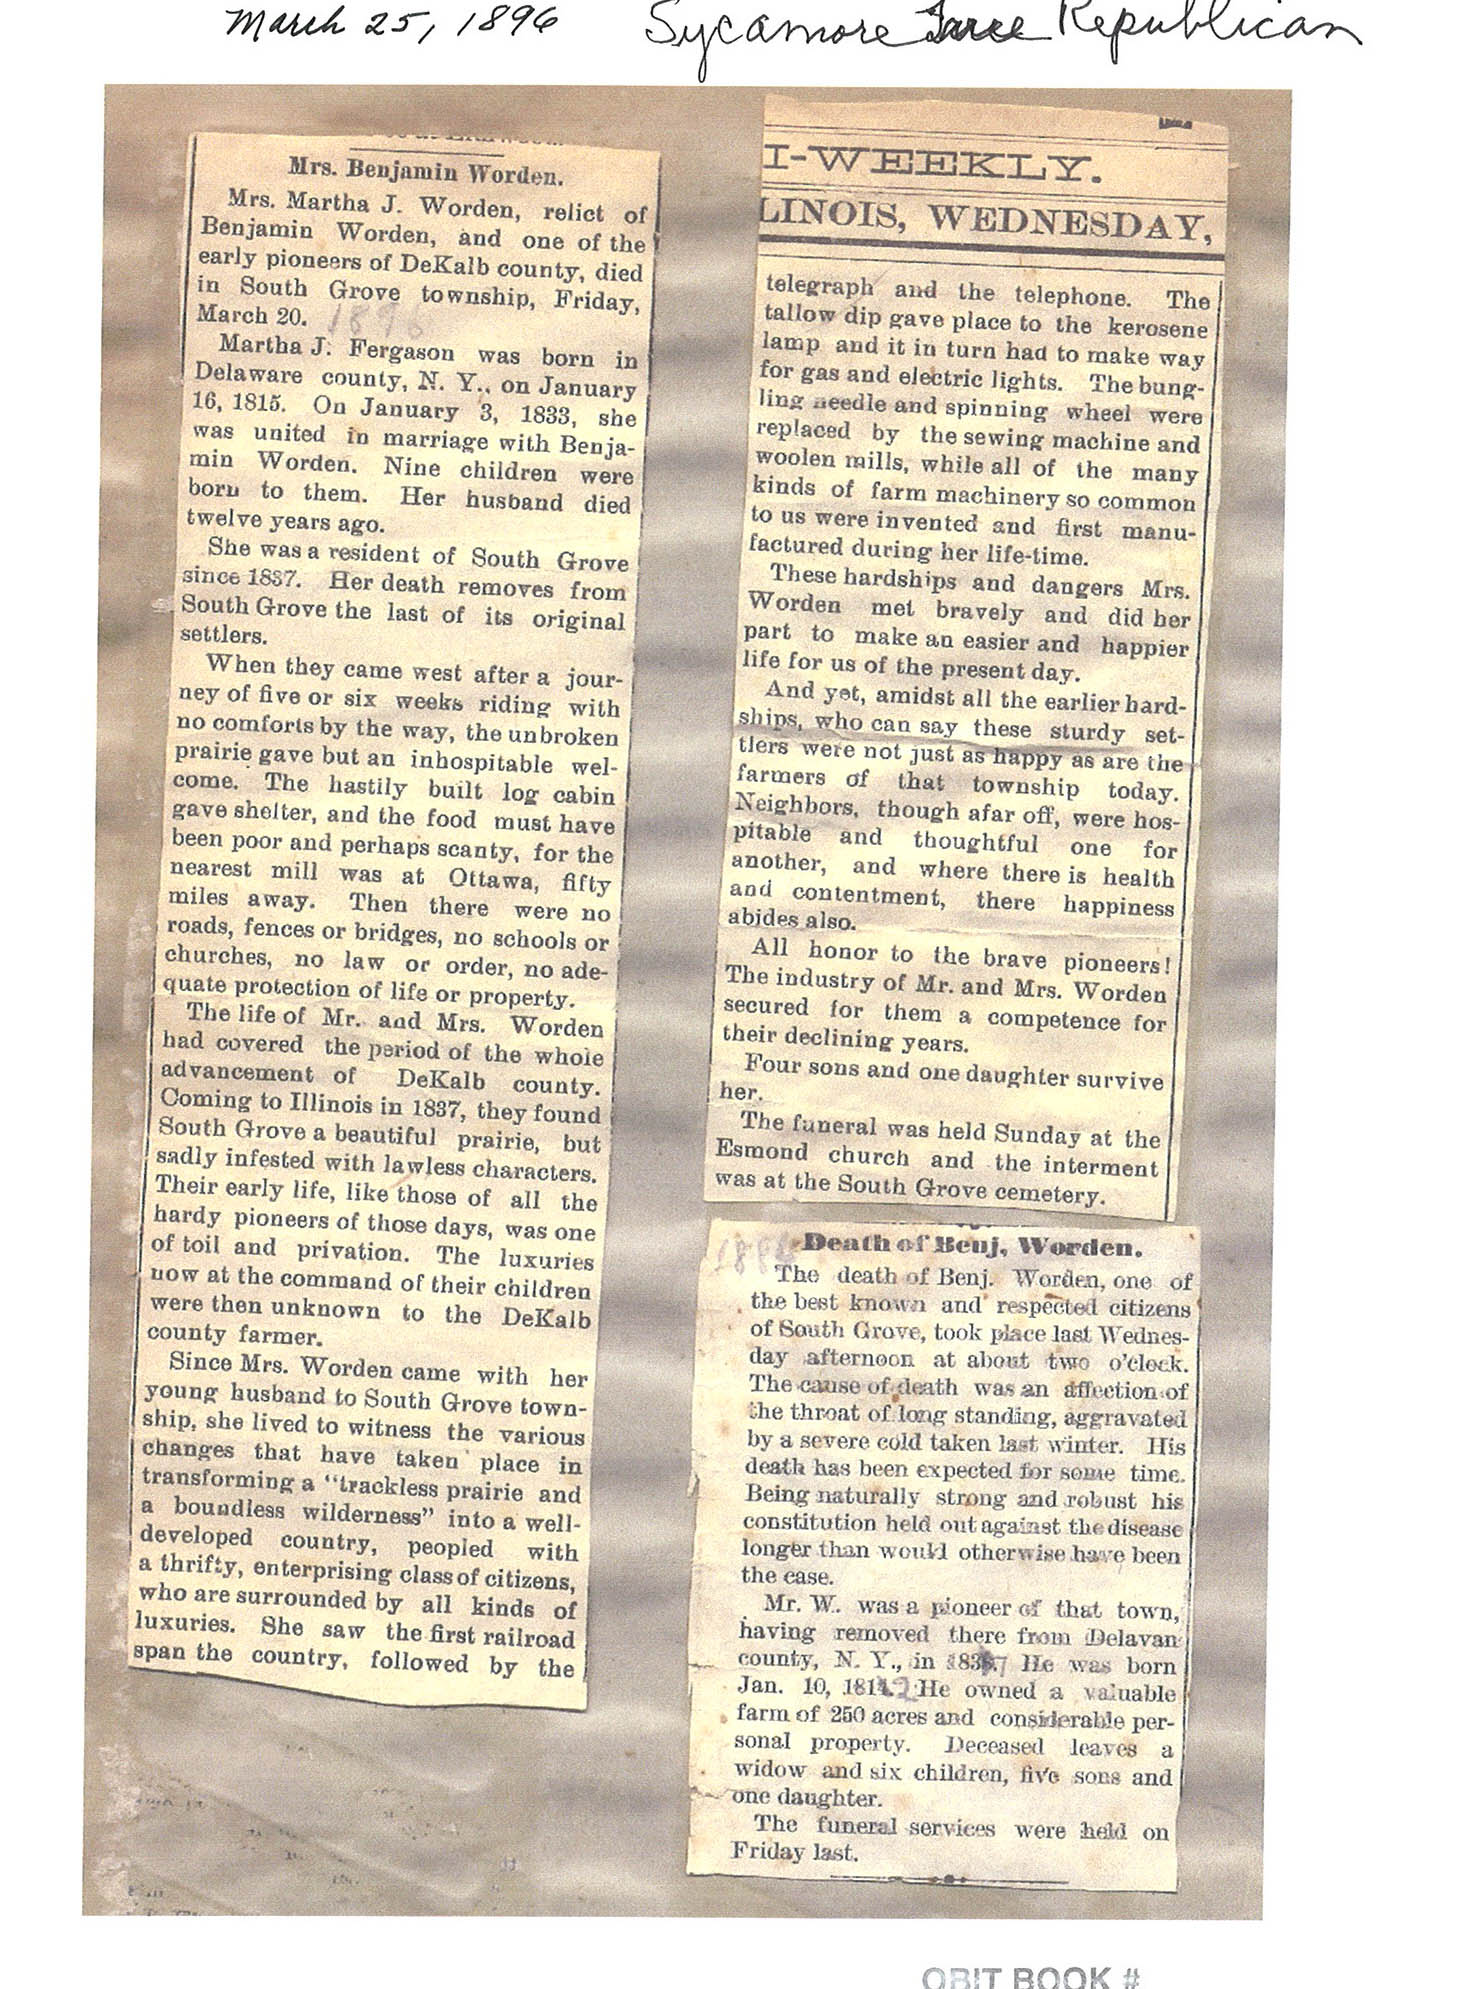 March 25, 1896 Sycamore Republican
Mrs. Benjamin Worden.
Mrs. Martha J. Worden, relict of
Benjamin Worden, and one of the
early pioneers of DeKalb county, died
in South Grove township, Friday,
March 20. 1896
Martha J. Fergason was born in
Delaware county, N. Y., on January
16, 1815. On January 3, 1833, she
was united in marriage with Benja-
min Worden. Nine children were
born to them. Her husband died
twelve years ago.
She was a resident of South Grove
since 1837. Her death removes from
South Grove the last of its original
settlers.
When they came west after a jour-
ney of five or six weeks riding with
no comforts by the way, the unbroken
prairie gave but an inhospitable wel-
come. The hastily built log cabin
gave shelter, and the food must have
been poor and perhaps scanty, for the
nearest mill was at Ottawa, fifty
miles away. Then there were no
roads, fences or bridges, no schools or
churches, no law or order, no ade-
quate protection of life or property.
The life of Mr. and Mrs. Worden
had covered the period of the whole
advancement of DeKalb county.
Coming to Illinois in 1837, they found
South Grove a beautiful prairie, but
sadly infested with lawless characters.
Their early life, like those of all the
hardy pioneers of those days, was one
of toil and privation. The luxuries
now at the command of their children
were then unknown to the DeKalb
county farmer.
Since Mrs. Worden came with her
young husband to South Grove town-
ship, she lived to witness the various
changes that have taken place in
transforming a "trackless prairie and
a boundless wilderness" into a well-
developed country, peopled with
a thrifty, enterprising class of citizens,
who are surrounded by all kinds of
luxuries. She saw the first railroad
span the country, followed by the
I-WEEKLY.
LINOIS, WEDNESDAY,
telegraph and the telephone. The
tallow dip gave place to the kerosene
lamp and it in turn had to make way
for gas and electric lights. The bung-
ling needle and spinning wheel were
replaced by the sewing machine and
woolen mills, while all of the many
kinds of farm machinery so common
to us were invented and first manu-
factured during her life-time.
These hardships and dangers Mrs.
Worden met bravely and did her
part to make an easier and happier
life for us of the present day.
And yet, amidst all the earlier hard-
ships, who can say these sturdy set-
tlers were not just as happy as are the
farmers of that township today.
Neighbors, though afar off, were hos-
pitable and thoughtful one for
another, and where there is health
and contentment, there happiness
abides also.
All honor to the brave pioneers!
The industry of Mr. and Mrs. Worden
secured for them a competence for
their declining years.
Four sons and one daughter survive
her.
The funeral was held Sunday at the
Esmond church and the interment
was at the South Grove cemetery.
Death of Benj, Worden.
The death of Benj. Worden, one of
the best known and respected citizens
of South Grove, took place last Wednes-
day afternoon at about two o'clock.
The cause of death was an affection of
the throat of long standing, aggravated
by a severe cold taken last winter. His
death has been expected for some time.
Being naturally strong and robust his
constitution held out against the disease
longer than would otherwise have been
the case.
Mr. W. was a pioneer of that town,
having removed there from Delavan
county, N. Y., in 1837 He was born
Jan. 10, 1812 He owned a valuable
farm of 250 acres and considerable per-
sonal property. Deceased leaves a
widow and six children, five sons and
one daughter.
The funeral services were held on
Friday last.
OBIT BOOK #